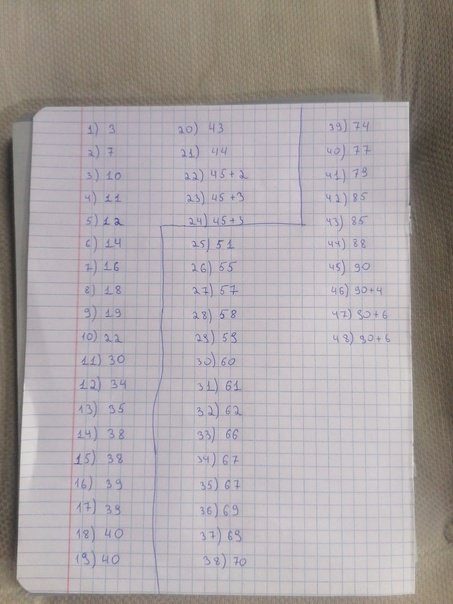 1) 3
2) 7
3) 10
4) 11
5) 12
6) 14
7) 16
8) 18
9) 19
10) 22
11) 30
12) 34
13) 35
14) 38
15) 38
16) 39
17) 39
18) 40
19) 40
20) 43
21) 44
22) 45+2
23) 45+3
24) 45+5
25) 51
26) 55
27) 57
28) 58
29) 59
30) 60
31) 61
32) 62
33) 66
34) 67
35) 67
36) 69
37) 69
38) 70
39) 74
40) 77
41) 79
42) 85
43) 85
44) 88
45) 90
46) 90+4
47) 90+6
48) 90+6